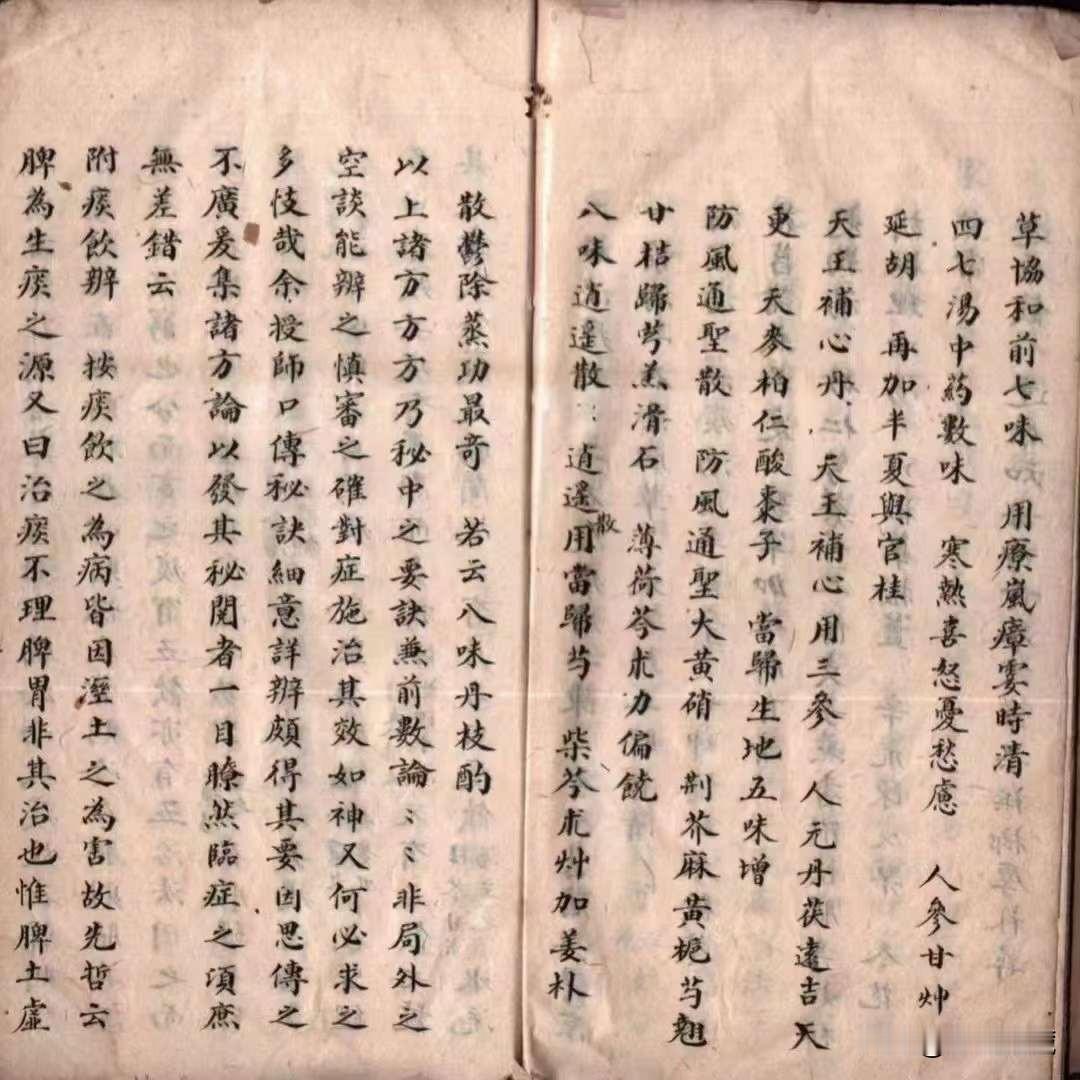 草協和前七味 用療嵐瘴霎時清
四七湯中药數味 寒熱喜怒憂愁慮 人參甘艸
延胡 再加半夏與官桂
天王補心丹 天王補心用三參 人元丹茯遠吉天
更 天麥柏仁酸棗子 當歸生地五味增
防風通聖散 防風通聖大黃硝 荆芥麻黃梔芍翘
甘桔歸芎羔滑石 薄荷芩朮力偏饒
八味逍遥散: 逍遥散用當歸芍 柴芩朮艸加姜朴
散鬱除蒸功最奇 若云八味丹枝酌
以上諸方方方乃秘中之要訣兼前數論:: 非局外之
空談能辨之慎審之確對症施治其效如神又何必求之
多忮哉余授師口傳秘訣細意詳辨頗得其要因思傳之
不廣爰集諸方論以發其秘閱者一目瞭然臨症之項庶
無差錯云
附痰飲辨 按痰飲之為病皆因溼土之為害故先哲云
脾為生痰之源又曰治痰不理脾胃非其治也惟脾土虛